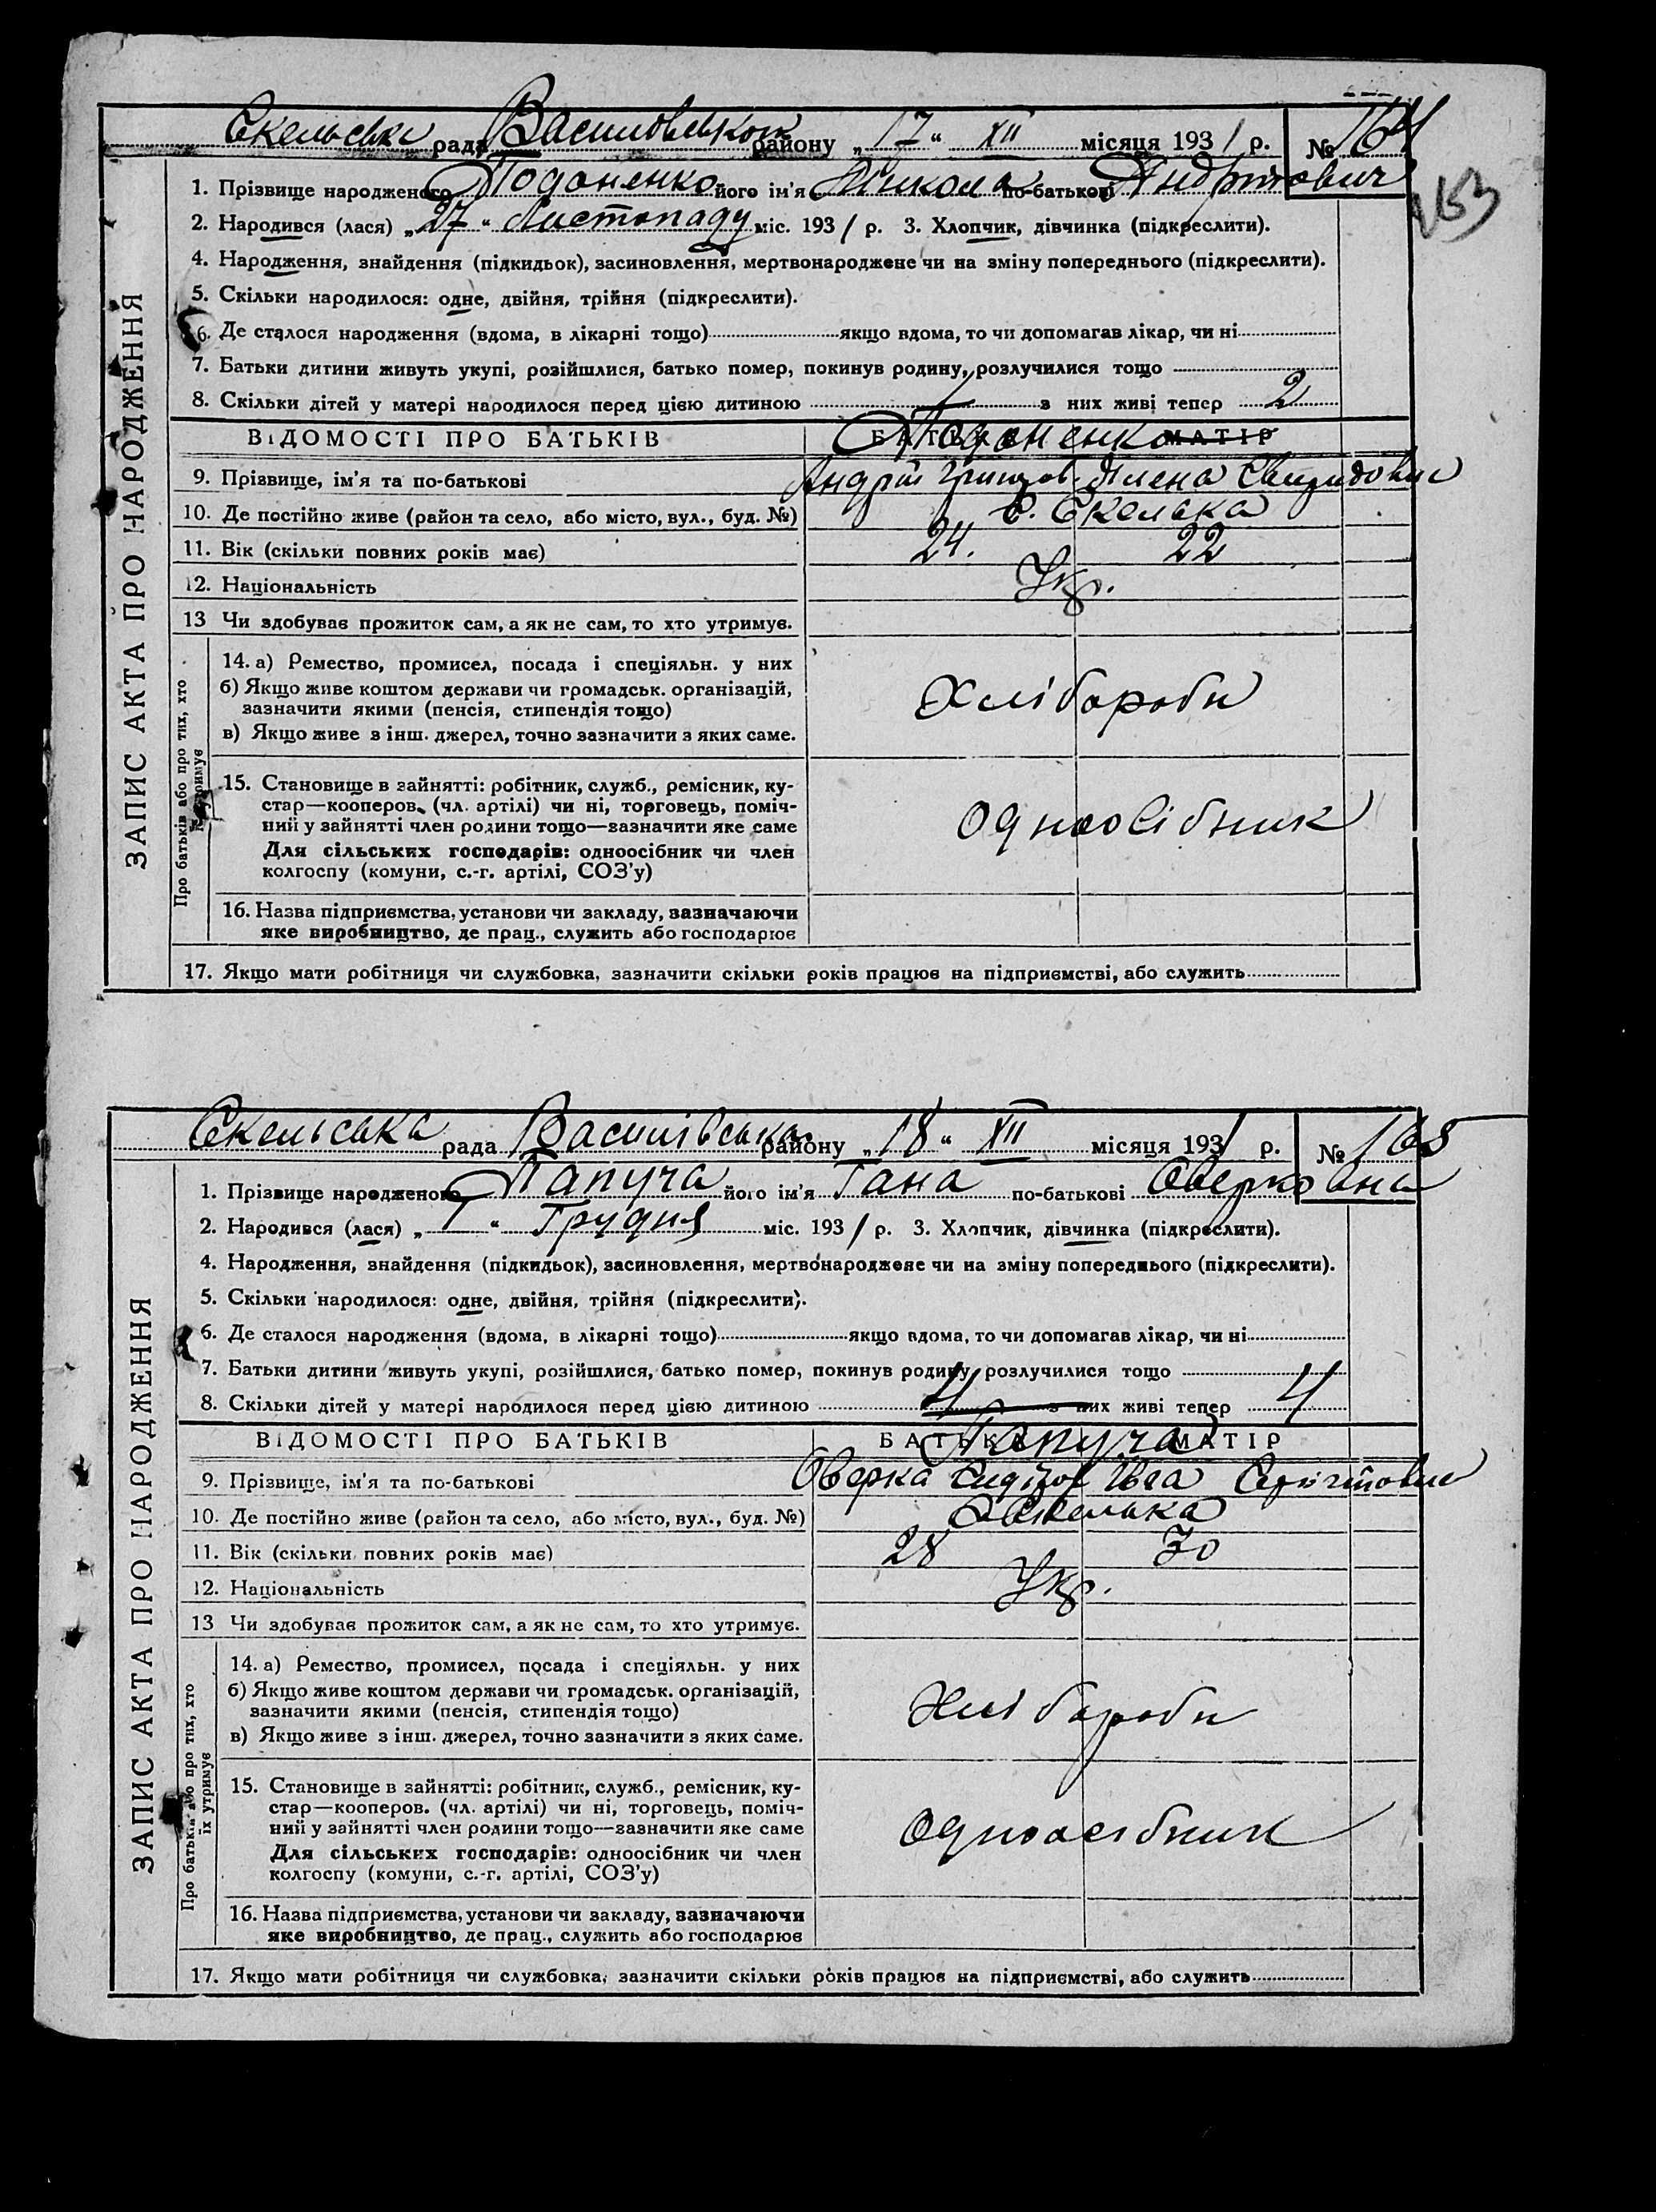 Скельська рада Василівського району „17“ XII місяця 1931 р. № 164
163
1. Прізвище народженого Подоненко його ім'я Микола по-батькові Андрійович
2. Народився (лася) „27“ Листопаду міс. 1931 р. 3. Хлопчик, дівчинка (підкреслити).
4. Народження, знайдення (підкидьок), засиновлення, мертвонароджене чи на зміну попереднього (підкреслити).
5. Скільки народилося: одне, двійня, трійня (підкреслити).
6. Де сталося народження (вдома, в лікарні тощо) якщо вдома, то чи допомагав лікар, чи ні
7. Батьки дитини живуть укупі, розійшлися, батько помер, покинув родину, розлучилися тощо
8. Скільки дітей у матері народилося перед цією дитиною 1 з них живі тепер 2
ВІДОМОСТІ ПРО БАТЬКІВ БАТЬКА МАТІР
Подоненко
9. Прізвище, ім'я та по-батькові Андрій Григор. Олена Свиридовна
10. Де постійно живе (район та село, або місто, вул., буд. №) с. Скелька
11. Вік (скільки повних років має) 24. 22
12. Національність Укр.
13 Чи здобуває прожиток сам, а як не сам, то хто утримує.
Про батьків або про тих, хто їх утримує
14. а) Ремество, промисел, посада і спеціяльн. у них
б) Якщо живе коштом держави чи громадськ. організацій,
зазначити якими (пенсія, стипендія тощо)
в) Якщо живе з інш. джерел, точно зазначити з яких саме.
Хлібороби
15. Становище в зайнятті: робітник, служб., ремісник, ку-
стар—кооперов. (чл. артілі) чи ні, торговець, поміч-
ний у зайнятті член родини тощо—зазначити яке саме
Для сільських господарів: одноосібник чи член
колгоспу (комуни, с.-г. артілі, СОЗ'у)
Одноосібник
16. Назва підприємства, установи чи закладу, зазначаючи
яке виробництво, де прац., служить або господарює
17. Якщо мати робітниця чи службовка, зазначити скільки років працює на підприємстві, або служить
ЗАПИС АКТА ПРО НАРОДЖЕННЯ
Скельська рада Василівська району „18“ XII місяця 1931 р. № 165
1. Прізвище народженого Папуча його ім'я Гана по-батькові Оверковна
2. Народився (лася) „1“ Грудня міс. 1931 р. 3. Хлопчик, дівчинка (підкреслити).
4. Народження, знайдення (підкидьок), засиновлення, мертвонароджене чи на зміну попереднього (підкреслити).
5. Скільки народилося: одне, двійня, трійня (підкреслити).
6. Де сталося народження (вдома, в лікарні тощо) якщо вдома, то чи допомагав лікар, чи ні
7. Батьки дитини живуть укупі, розійшлися, батько помер, покинув родину, розлучилися тощо
8. Скільки дітей у матері народилося перед цією дитиною 4 з них живі тепер 4
ВІДОМОСТІ ПРО БАТЬКІВ БАТЬКА МАТІР
Папуча
9. Прізвище, ім'я та по-батькові Оверка
10. Де постійно живе (район та село, або місто, вул., буд. №) Скелька
11. Вік (скільки повних років має) 28 30
12. Національність Укр.
13 Чи здобуває прожиток сам, а як не сам, то хто утримує.
Про батьків або про тих, хто їх утримує
14. а) Ремество, промисел, посада і спеціяльн. у них
б) Якщо живе коштом держави чи громадськ. організацій,
зазначити якими (пенсія, стипендія тощо)
в) Якщо живе з інш. джерел, точно зазначити з яких саме.
Хлібороби
15. Становище в зайнятті: робітник, служб., ремісник, ку-
стар—кооперов. (чл. артілі) чи ні, торговець, поміч-
ний у зайнятті член родини тощо—зазначити яке саме
Для сільських господарів: одноосібник чи член
колгоспу (комуни, с.-г. артілі, СОЗ'у)
Одноосібник
16. Назва підприємства, установи чи закладу, зазначаючи
яке виробництво, де прац., служить або господарює
17. Якщо мати робітниця чи службовка, зазначити скільки років працює на підприємстві, або служить
ЗАПИС АКТА ПРО НАРОДЖЕННЯ